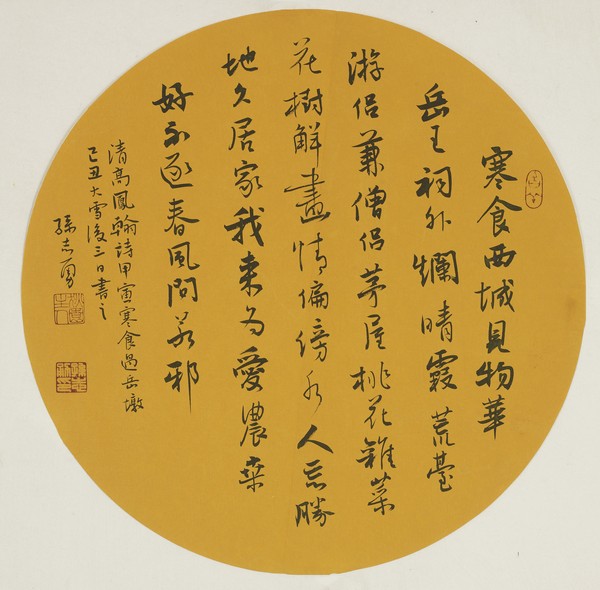 寒食西城見物華
岳王祠外爛晴霞荒臺
游侣兼僧侣茅屋桃花雜菜
花樹解畫情偏傍水人忘勝
地久居家我来为愛濃桒
好不逐春風問若邪
清高鳳翰詩甲寅寒食過岳墩
己丑大雪後三日書之
孫志勇